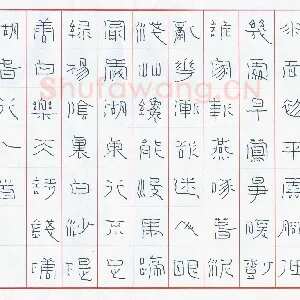 水面初平雲腳低
幾處早鶯爭暖樹
誰家新燕啄春泥
亂花漸欲迷人眼
淺草纔能沒馬蹄
最愛湖東行不足
綠楊陰裏白沙堤
唐白樂天詩錢塘
湖春行
Shufawang.CN